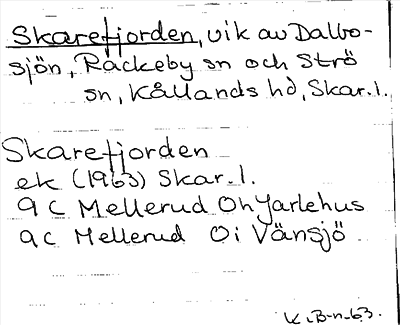 Skarefjorden, vik av Dalbo-
sjön, Rackeby sn och Strö
sn, Kållands hd, Skar.l.
Skarefjorden
ek (1963) Skar.l.
9 C Mellerud Oh Jarlehus
9c Mellerud Oi Vänsjö
K.B-n-63.